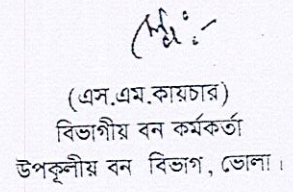 (এস.এম.কায়চার)
বিভাগীয় বন কর্মকর্তা
উপকূলীয় বন বিভাগ, ভোলা।